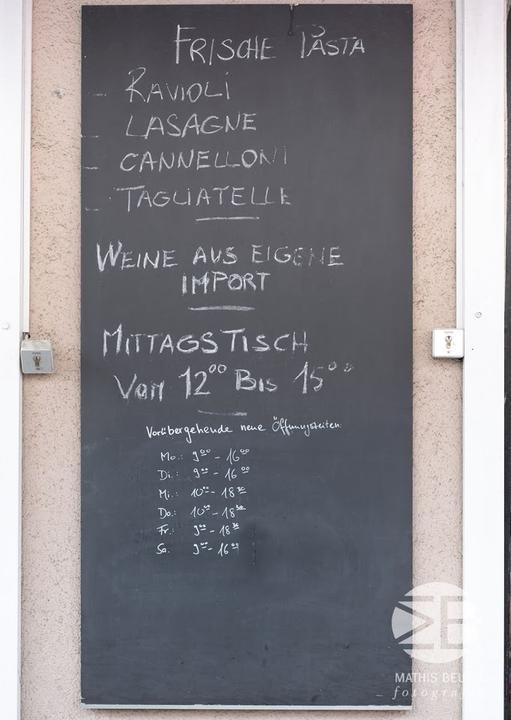 FRISCHE PASTA
- RAVIOLI
- LASAGNE
- CANNELLONI
- TAGLIATELLE
WEINE AUS EIGENE
IMPORT
MITTAGSTISCH
VON 12⁰⁰ BIS 15⁰⁰
Vorübergehende neue Öffnungszeiten:
Mo.: 9⁰⁰ - 16⁰⁰
Di.: 9⁰⁰ - 16⁰⁰
Mi.: 10⁰⁰ - 18³⁰
Do.: 10⁰⁰ - 18³⁰
Fr.: 9⁰⁰ - 18³⁰
Sa. 9⁰⁰ - 16⁰⁰
MATHIS